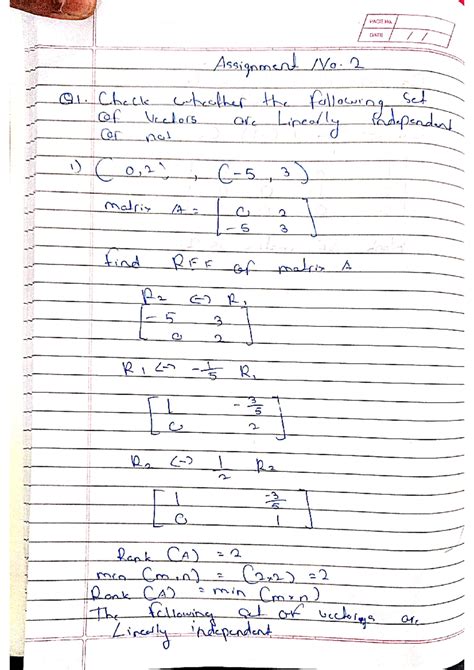 PAGE No.
DATE / /
Assignment No. 2
Q1. Check wheather the following set
of vectors are Linearly Independent
or not
i) (0,2) , (-5, 3)
matrix A = [ 0 2
-5 3 ]
find REF of matrix A
R2 <-> R1
[ -5 3
0 2 ]
R1 <-> -1/5 R1
[ 1 -3/5
0 2 ]
R2 <-> 1/2 R2
[ 1 -3/5
0 1 ]
Rank (A) = 2
min (m,n) = (2x2) = 2
Rank (A) = min (mxn)
The following set of vectors are
Linearly independent